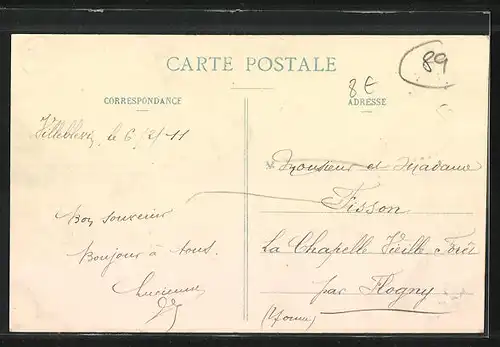 CARTE POSTALE
89
8 €
CORRESPONDANCE
ADRESSE
Villeblevin, le 6/2/11
Monsieur et Madame
Fisson
La Chapelle Vieille Forêt
par Flogny
(Yonne)
Bon souvenir
Bonjour à tous.
Lucienne